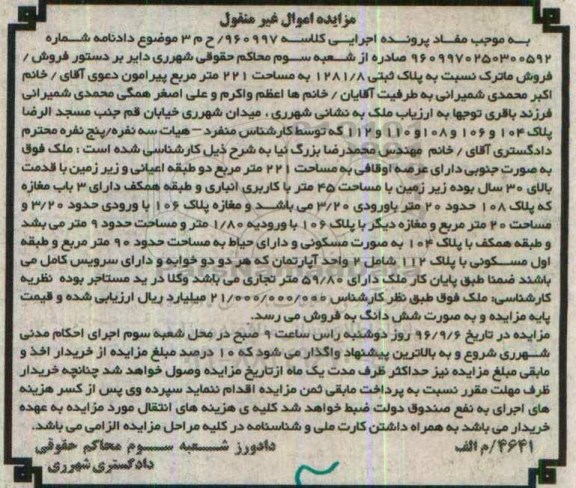 مزایده اموال غیر منقول
به موجب مفاد پرونده اجرایی کلاسه ۹۶۰۹۹۷/ح م ۳ موضوع دادنامه شماره
۹۶۰۹۹۷۰۲۵۰۳۰۰۵۹۲ صادره از شعبه سوم محاکم حقوقی شهرری دایر بر دستور فروش /
فروش ماترک نسبت به پلاک ثبتی ۱۲۸۱/۸ به مساحت ۲۲۱ متر مربع پیرامون دعوی آقای / خانم
اکبر محمدی شمیرانی به طرفیت آقایان / خانم ها اعظم واکرم و علی اصغر همگی محمدی شمیرانی
فرزند باقری توجها به ارزیاب ملک به نشانی شهرری ، میدان شهرری خیابان قم جنب مسجد الرضا
پلاک ۱۰۴ و ۱۰۶ و ۱۰۸و ۱۱۰ و ۱۱۲ که توسط کارشناس منفرد – هیات سه نفره/پنج نفره محترم
دادگستری آقای / خانم مهندس محمدرضا بزرگ نیا به شرح ذیل کارشناسی شده است : ملک فوق
به صورت جنوبی دارای عرصه اوقافی به مساحت ۲۲۱ متر مربع دو طبقه اعیانی و زیر زمین با قدمت
بالای ۳۰ سال بوده زیر زمین با مساحت ۴۵ متر با کاربری انباری و طبقه همکف دارای ۳ باب مغازه
که پلاک ۱۰۸ حدود ۲۰ متر باورودی ۳/۲۰ می باشد و مغازه پلاک ۱۰۶ با ورودی حدود ۳/۲۰ و
مساحت ۲۰ متر مربع و مغازه دیگر با پلاک ۱۰۶ با ورودیه ۱/۸۰ متر و مساحت حدود ۹ متر می بشد
و طبقه همکف با پلاک ۱۰۴ به صورت مسکونی و دارای حیاط به مساحت حدود ۹۰ متر مربع و طبقه
اول مسکونی با پلاک ۱۱۲ شامل ۲ واحد آپارتمان که هر دو دو خوابه و دارای سرویس کامل می
باشند ضمنا طبق پایان کار ملک دارای ۵۹/۸۰ متر تجاری می باشد وکلا در ید مستاجر بوده نظریه
کارشناسی: ملک فوق طبق نظر کارشناس ۲۱/۰۰۰/۰۰۰/۰۰۰ میلیارد ریال ارزیابی شده و قیمت
پایه مزایده و به صورت شش دانگ به فروش می رسد.
مزایده در تاریخ ۹۶/۹/۶ روز دوشنبه راس ساعت ۹ صبح در محل شعبه سوم اجرای احکام مدنی
شهرری شروع و به بالاترین پیشنهاد واگذار می شود که ۱۰ درصد مبلغ مزایده از خریدار اخذ و
مابقی مبلغ مزایده نیز حداکثر ظرف مدت یک ماه ازتاریخ مزایده وصول خواهد شد چنانچه خریدار
ظرف مهلت مقرر نسبت به پرداخت مابقی ثمن مزایده اقدام ننماید سپرده وی پس از کسر هزینه
های اجرای به نفع صندوق دولت ضبط خواهد شد کلیه ی هزینه های انتقال مورد مزایده به عهده
خریدار می باشد به همراه داشتن کارت ملی و شناسنامه در کلیه مراحل مزایده الزامی می باشد.
۴۶۴۱/م الف
دادورز شعبه سوم محاکم حقوقی
دادگستری شهرری